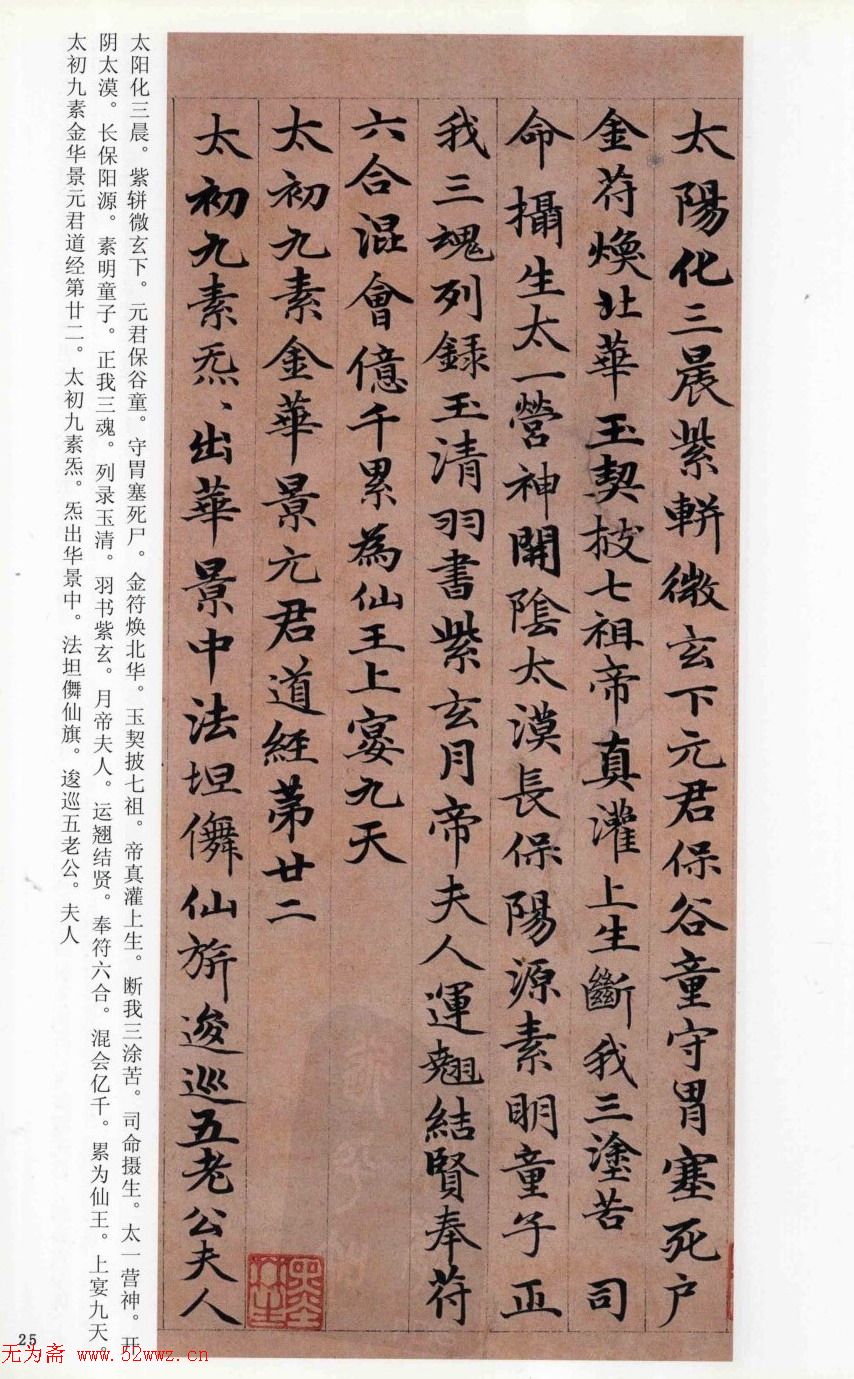 太陽化三晨紫軿微玄下元君保谷童守胃塞死户
金苻煥北華玉契披七祖帝真灌上生斷我三塗苦司
命攝生太一營神開陰太漠長保陽源素明童子正
我三魂列錄玉清羽書紫玄月帝夫人運翘結賢奉苻
六合混會億千累為仙王上宴九天
太初九素金華景元君道經第廿二
太初九素炁、出華景中法坦儛仙旂逡巡五老公夫人
太阳化三晨。紫軿微玄下。元君保谷童。守胃塞死尸。金符焕北华。玉契披七祖。帝真灌上生。断我三涂苦。司命摄生。太一营神。开
阴太漠。长保阳源。素明童子。正我三魂。列录玉清。羽书紫玄。月帝夫人。运翘结贤。奉符六合。混会亿千。累为仙王。上宴九天。
太初九素金华景元君道经第廿二。太初九素炁。炁出华景中。法坦儛仙旗。逡巡五老公。夫人
25
无为斋 www.52wwz.cn